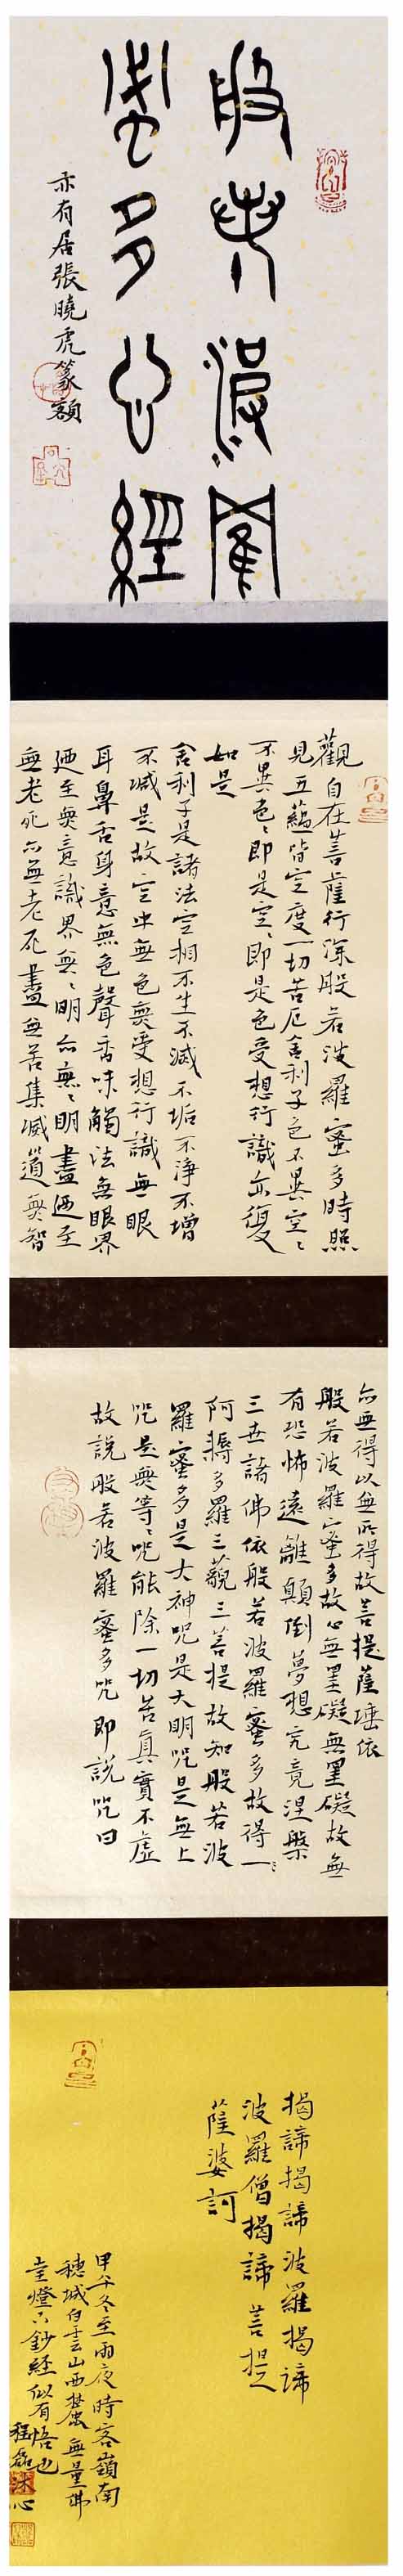 般若波羅
蜜多心經
亦有居張曉虎篆額
觀自在菩薩行深般若波羅蜜多時照
見五蘊皆空度一切苦厄舍利子色不異空〻
不異色〻即是空〻即是色受想行識亦復
如是
舍利子是諸法空相不生不滅不垢不淨不增
不減是故空中無色無受想行識無眼
耳鼻舌身意無色聲香味觸法無眼界
廼至無意識界無〻明亦無〻明盡廼至
無老死亦無老死盡無苦集滅道無智
亦無得以無所得故菩提薩埵依
般若波羅蜜多故心無罣礙無罣礙故無
有恐怖遠離顛倒夢想究竟涅槃
三世諸佛依般若波羅蜜多故得一〻
阿耨多羅三藐三菩提故知般若波
羅蜜多是大神咒是大明咒是無上
咒是無等〻咒能除一切苦真實不虛
故說般若波羅蜜多咒即說咒曰
揭諦揭諦波羅揭諦
波羅僧揭諦菩提
薩婆訶
甲午冬至雨夜時客嶺南
穗城白雲山西麓無量佛
堂燈下鈔経似有悟也
程磊沐心